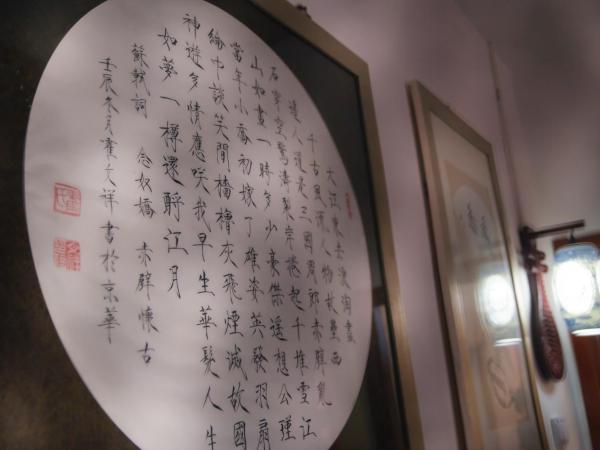 大江東去浪淘盡
千古風流人物故壘西
邊人道是三國周郎赤壁亂
石穿空驚濤裂岸捲起千堆雪江
山如畫一時多少豪傑遙想公瑾
當年小喬初嫁了雄姿英發羽扇
綸巾談笑間檣櫓灰飛煙滅故國
神遊多情應咲我早生華髮人生
如夢一樽還酹江月
蘇軾詞 念奴嬌 赤壁懷古
壬辰冬月霍文祥書於京華